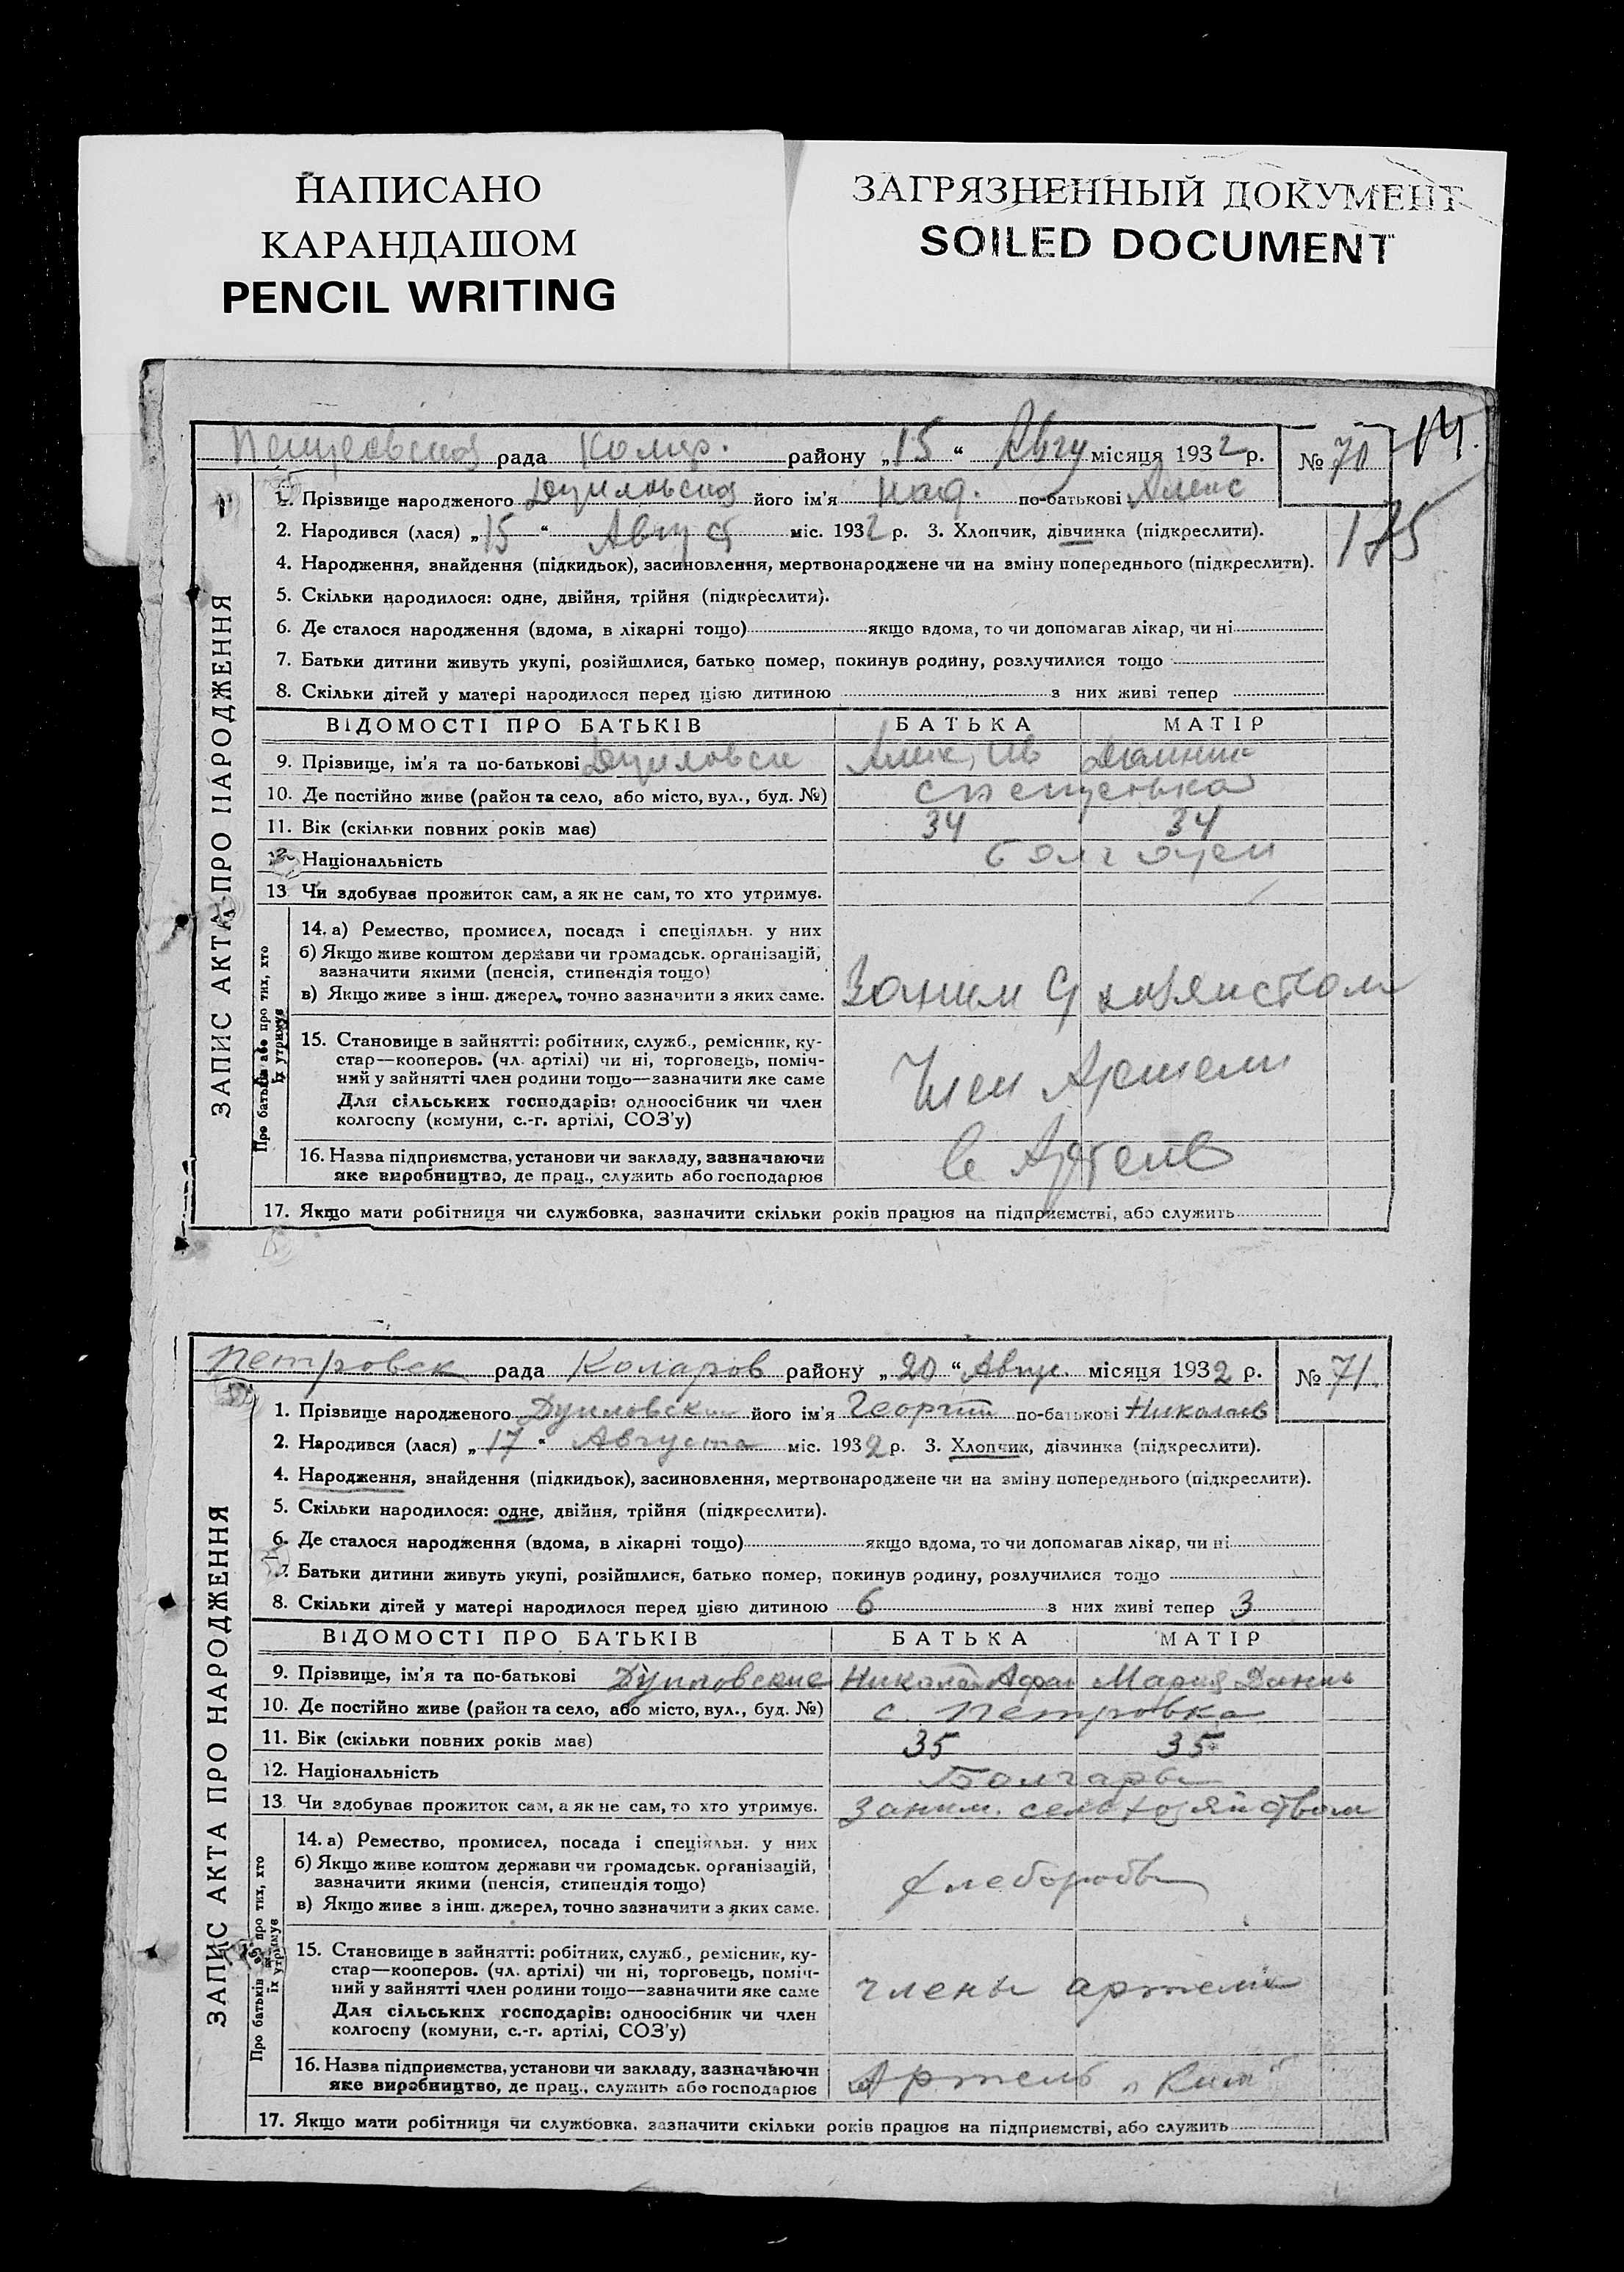 НАПИСАНО
КАРАНДАШОМ
PENCIL WRITING
ЗАГРЯЗНЕННЫЙ ДОКУМЕНТ
SOILED DOCUMENT
14.
175
ЗАПИС АКТА ПРО НАРОДЖЕННЯ
рада Колар. району „15“ Авгу місяця 1932 р. № 70
1. Прізвище народженого Дуиловская його ім'я Над. по-батькові Алекс
2. Народився (лася) „15“ Август міс. 1932 р. 3. Хлопчик, дівчинка (підкреслити).
4. Народження, знайдення (підкидьок), засиновлення, мертвонароджене чи на зміну попереднього (підкреслити).
5. Скільки народилося: одне, двійня, трійня (підкреслити).
6. Де сталося народження (вдома, в лікарні тощо) якщо вдома, то чи допомагав лікар, чи ні
7. Батьки дитини живуть укупі, розійшлися, батько помер, покинув родину, розлучилися тощо
8. Скільки дітей у матері народилося перед цією дитиною з них живі тепер
ВІДОМОСТІ ПРО БАТЬКІВ БАТЬКА МАТІР
9. Прізвище, ім'я та по-батькові Дуиловски Алек, Ив
10. Де постійно живе (район та село, або місто, вул., буд. №)
11. Вік (скільки повних років має) 34 34
12. Національність
13 Чи здобуває прожиток сам, а як не сам, то хто утримує.
Про батьків або про тих, хто їх утримує
14. а) Ремество, промисел, посада і спеціяльн. у них
б) Якщо живе коштом держави чи громадськ. організацій,
зазначити якими (пенсія, стипендія тощо)
в) Якщо живе з інш. джерел, точно зазначити з яких саме.
Заним С хозяиством
15. Становище в зайнятті: робітник, служб., ремісник, ку-
стар—кооперов. (чл. артілі) чи ні, торговець, поміч-
ний у зайнятті член родини тощо—зазначити яке саме
Для сільських господарів: одноосібник чи член
колгоспу (комуни, с.-г. артілі, СОЗ'у)
Член Артели
16. Назва підприємства, установи чи закладу, зазначаючи
яке виробництво, де прац., служить або господарює
в Артели
17. Якщо мати робітниця чи службовка, зазначити скільки років працює на підприємстві, або служить
ЗАПИС АКТА ПРО НАРОДЖЕННЯ
Петровск рада Коларов району „20“ Авгу. місяця 1932 р. № 71.
1. Прізвище народженого Дуиловский його ім'я Георгий по-батькові Николаев
2. Народився (лася) „17“ Августа міс. 1932 р. 3. Хлопчик, дівчинка (підкреслити).
4. Народження, знайдення (підкидьок), засиновлення, мертвонароджене чи на зміну попереднього (підкреслити).
5. Скільки народилося: одне, двійня, трійня (підкреслити).
6. Де сталося народження (вдома, в лікарні тощо) якщо вдома, то чи допомагав лікар, чи ні
7. Батьки дитини живуть укупі, розійшлися, батько помер, покинув родину, розлучилися тощо
8. Скільки дітей у матері народилося перед цією дитиною 6 з них живі тепер 3
ВІДОМОСТІ ПРО БАТЬКІВ БАТЬКА МАТІР
9. Прізвище, ім'я та по-батькові Дуиловские Николай Афан Мария Даниль
10. Де постійно живе (район та село, або місто, вул., буд. №) с. Петровка
11. Вік (скільки повних років має) 35 35
12. Національність Болгары
13 Чи здобуває прожиток сам, а як не сам, то хто утримує. Заним. сель хозяйством
Про батьків або про тих, хто їх утримує
14. а) Ремество, промисел, посада і спеціяльн. у них
б) Якщо живе коштом держави чи громадськ. організацій,
зазначити якими (пенсія, стипендія тощо)
в) Якщо живе з інш. джерел, точно зазначити з яких саме.
хлеборобы
15. Становище в зайнятті: робітник, служб., ремісник, ку-
стар—кооперов. (чл. артілі) чи ні, торговець, поміч-
ний у зайнятті член родини тощо—зазначити яке саме
Для сільських господарів: одноосібник чи член
колгоспу (комуни, с.-г. артілі, СОЗ'у)
члены артели
16. Назва підприємства, установи чи закладу, зазначаючи
яке виробництво, де прац., служить або господарює
Артель „Ким“
17. Якщо мати робітниця чи службовка, зазначити скільки років працює на підприємстві, або служить